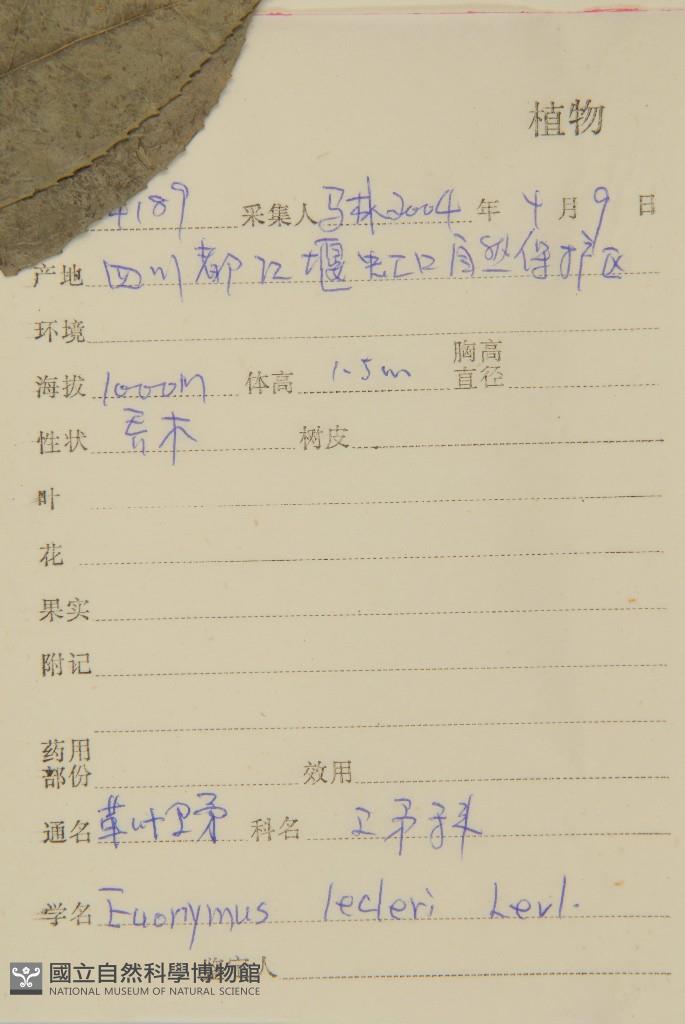 植物
4189 采集人 马林 2004 年 4 月 9 日
产地 四川都江堰虹口自然保护区
环境
海拔 1000M 体高 1.5m 胸高直径
性状 乔木 树皮
叶
花
果实
附记
药用部份 效用
通名 革叶卫矛 科名 卫矛科
学名 Euonymus lecleri Levl.
鉴定人
國立自然科學博物館
NATIONAL MUSEUM OF NATURAL SCIENCE